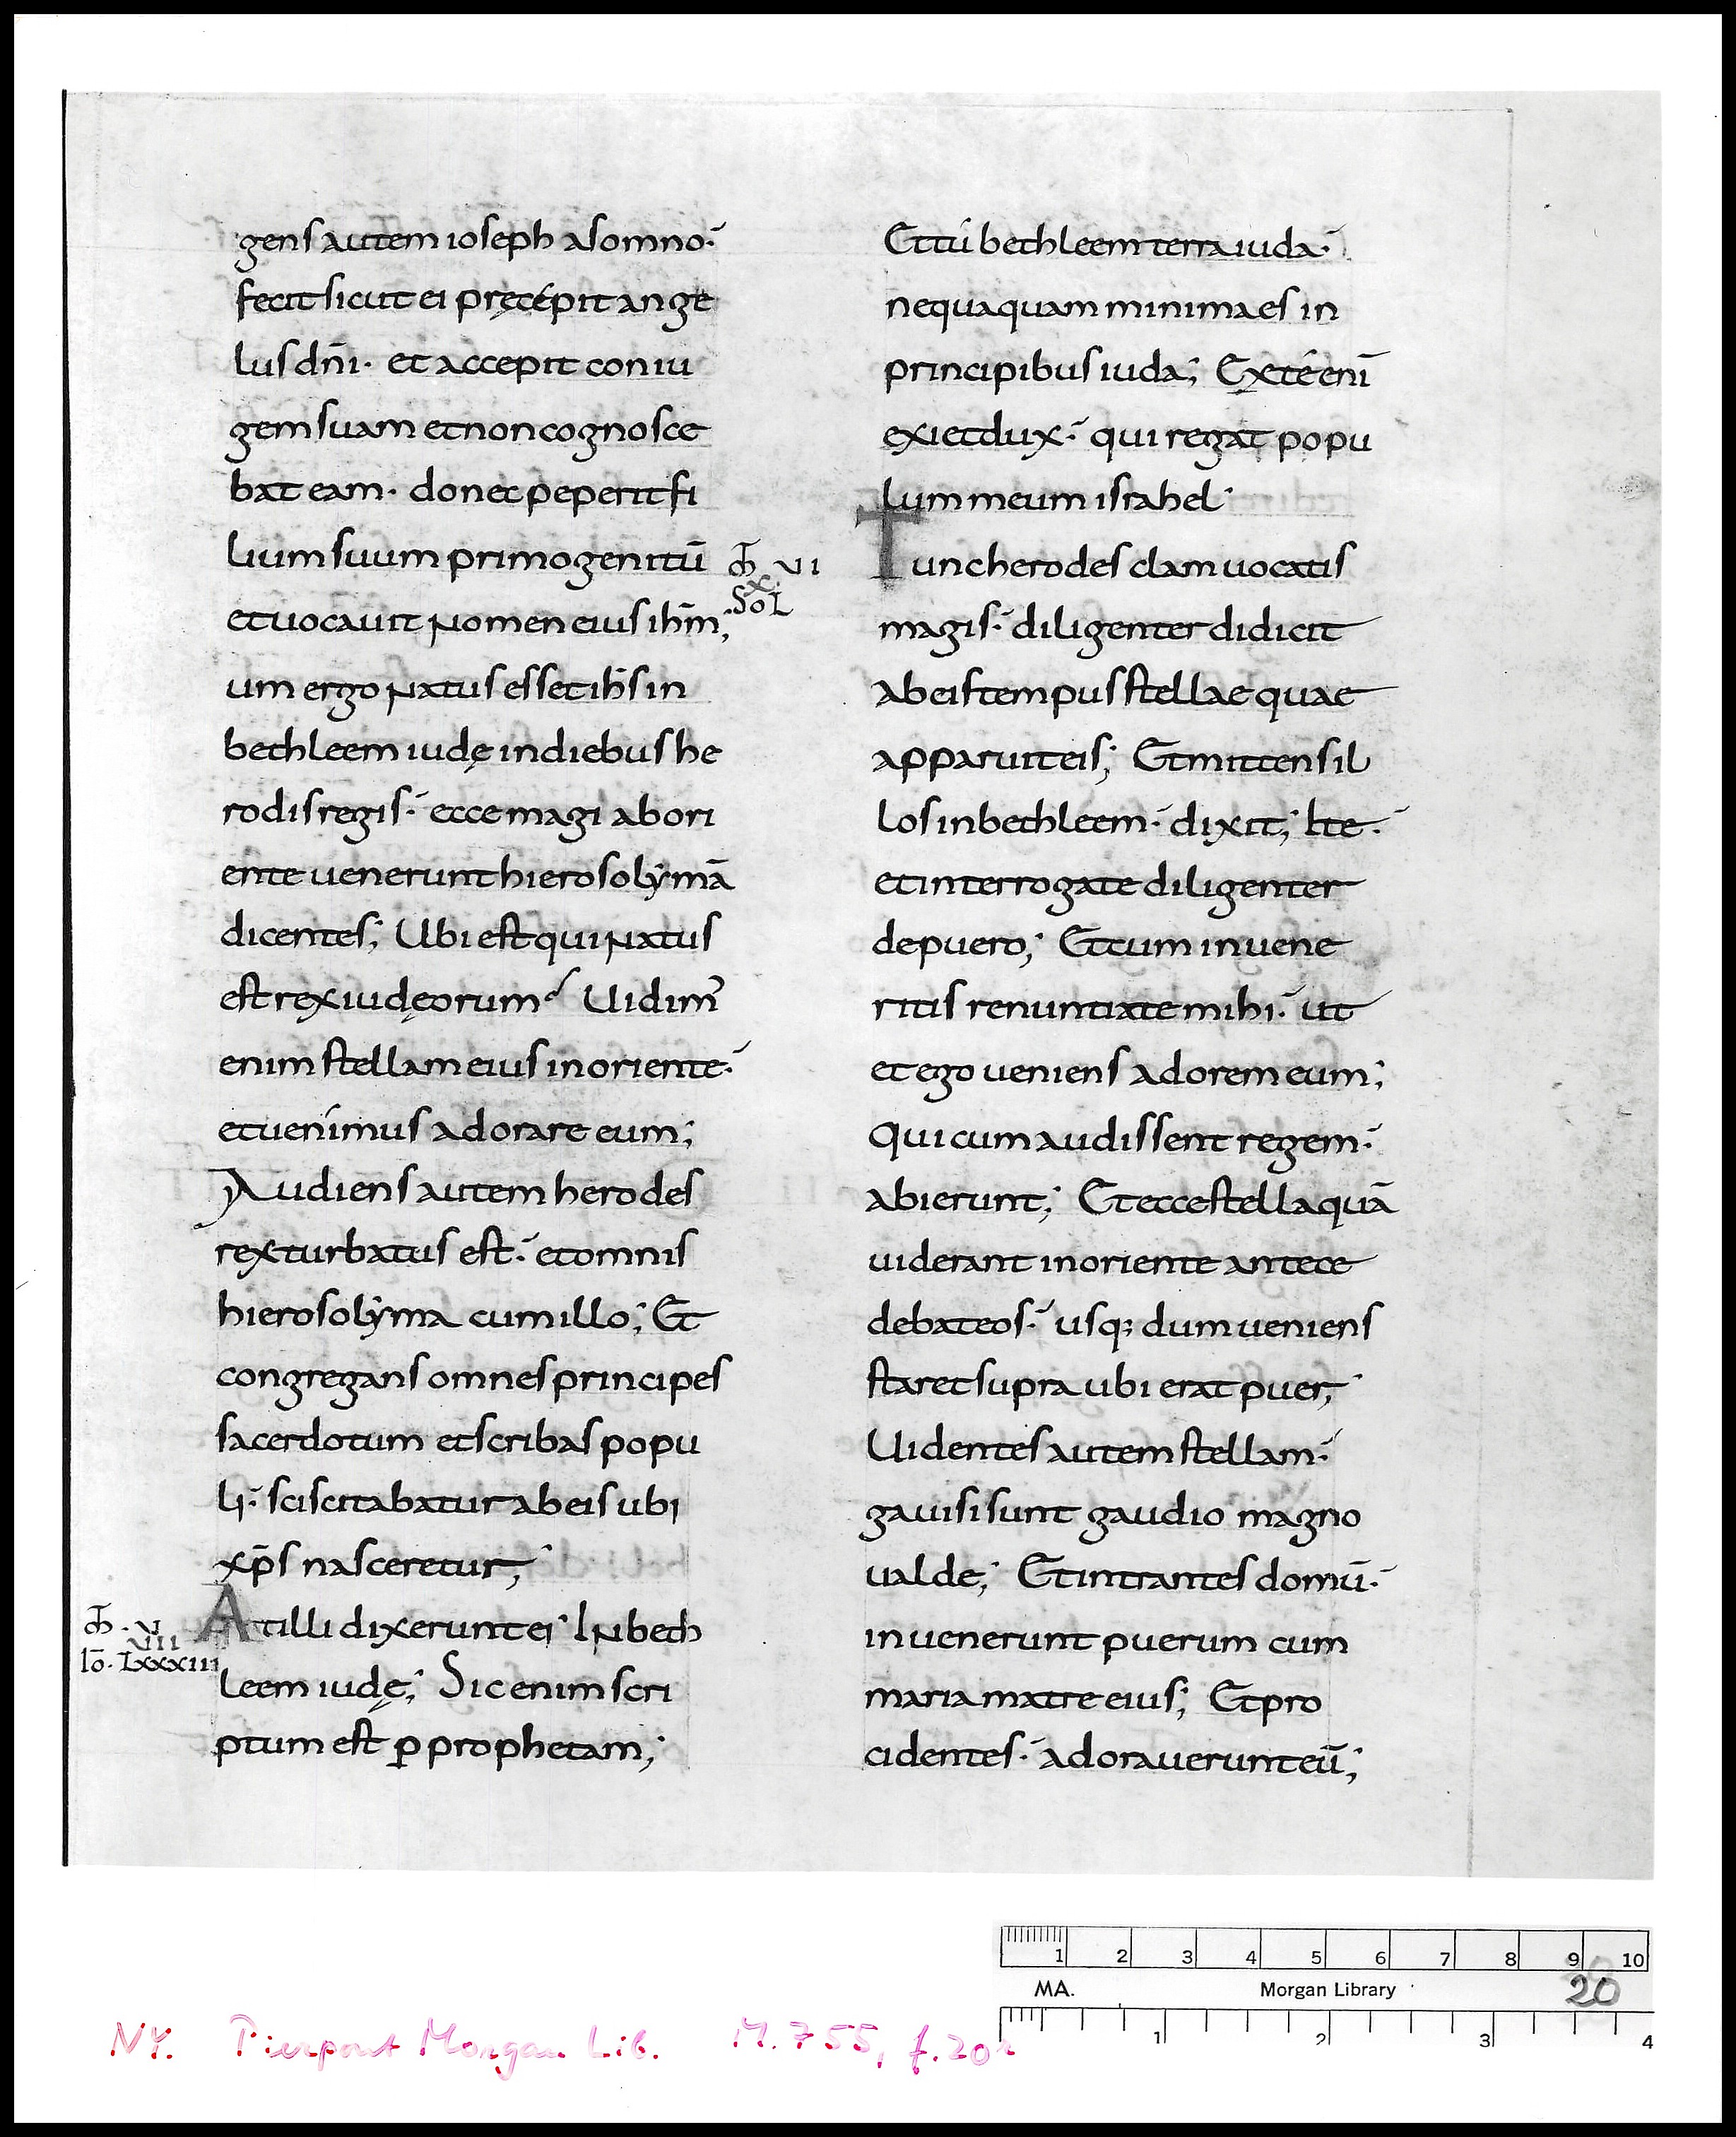 gens autem ioseph asomno·
fecit sicut ei pręcépit ange
lus dn̄i· et accepit coniu
gem suam et non cognosce
bat eam· donec peperit fi
lium suum primogenitū
et uocauit nomen eius ihm̄;
um ergo natus esset ihs̄ in
bethleem iudę in diebus he
rodis regis· ecce magi ab ori
ente uenerunt hierosolẏmā
dicentes; Ubi est qui natus
est rex iudęorum? Uidim᾽
enim stellam eius in oriente·
et uenímus adorare eum;
Audiens autem herodes
rex turbatus est· et omnis
hierosolẏma cum illo; Et
congregans omnes principes
sacerdotum et scribas popu
li· sciscitabatur ab eis ubi
xp̄s nasceretur;
VI
SOL
X
V
VIII
Io. LXXXIII
At illi dixerunt ei· In beth
leem iudę; Sic enim scri
ptum est ꝑ prophetam;
Et tú bethleem terra iuda·
nequaquam minima es in
principibus iuda; Ex tê enī
exiet dux· qui regat popu
lum meum israhel·
Tunc herodes clam uocatis
magis· diligenter didicit
ab eis tempus stellae quae
apparuit eis; Et mittens il
los in bethleem· dixit; Ite·
et interrogate diligenter
de puero; Et cum inuene
ritis renuntiate mihi· ut
et ego ueniens adorem eum;
qui cum audissent regem·
abierunt; Et ecce stella quā
uiderant in oriente antece
debat eos· usq; dum ueniens
staret supra ubi erat puer;
Uidentes autem stellam·
gauisi sunt gaudio magno
ualde; Et intrantes domū·
inuenerunt puerum cum
maria matre eius; Et pro
cidentes· adorauerunt eū;
1 2 3 4 5 6 7 8 9 10
MA. Morgan Library 20
1 2 3 4
NY. Pierpont Morgan Lib. M.755, f.20r